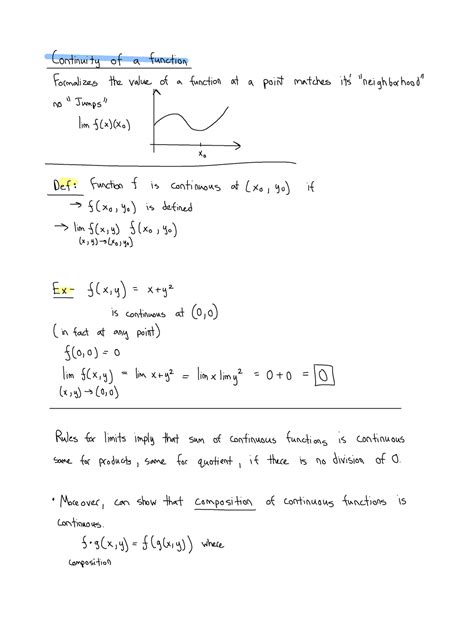 Continuity of a function
Formalizes the value of a function at a point matches its' "neighborhood"
no "Jumps"
lim f(x)(x₀)
x₀
Def: Function f is continuous at (x₀, y₀) if
→ f(x₀, y₀) is defined
→ lim f(x,y) f(x₀, y₀)
(x,y)→(x₀,y₀)
Ex- f(x,y) = x+y²
is continuous at (0,0)
(in fact at any point)
f(0,0) = 0
lim f(x,y) = lim x+y² = lim x lim y² = 0+0 = 0
(x,y)→(0,0)
Rules for limits imply that sum of continuous functions is continuous
same for products, same for quotient, if there is no division of 0.
• Moreover, can show that composition of continuous functions is
continuous.
f∘g(x,y) = f(g(x,y)) where
composition